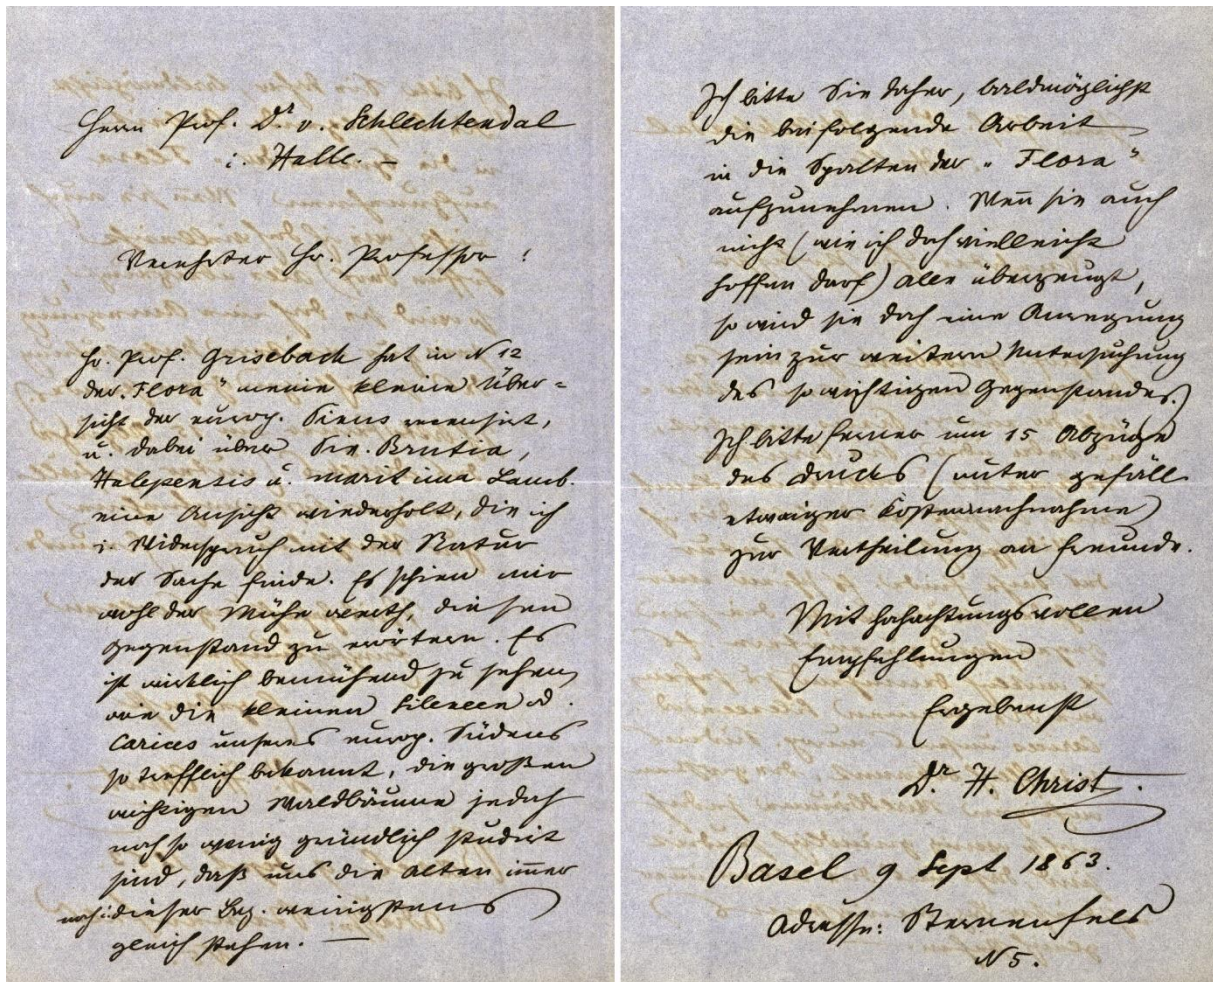 Herrn Prof. Dr v. Schlechtendal
i. Halle. –
Verehrter Hr. Professor!
Hr. Prof. Grisebach hat in N 12
der „Flora“ meine kleine Über=
sicht der europ. Pinus recensirt,
u. dabei über Pin. Brutia,
Halepensis u. maritima Lamb.
eine Ansicht wiederholt, die ich
i. Widerspruch mit der Natur
der Sache finde. Es schien mir
wohl der Mühe werth, diesen
Gegenstand zu erörtern. Es
ist wirklich bemühend zu sehen,
wie die kleinen Sileneen od.
Carices unseres europ. Südens
so trefflich bekannt, die großen
wichtigen Waldbäume jedoch
noch so wenig gründlich studirt
sind, daß uns die Alten immer
noch i: dieser Bez. wenigstens
gleich stehen. —
Ich bitte Sie daher, baldmöglichst
die beifolgende Arbeit
in die Spalten der „Flora“
aufzunehmen. Wenn sie auch
nicht (wie ich doch vielleicht
hoffen darf) alle überzeugt,
so wird sie doch eine Anregung
sein zur weitern Untersuchung
des so wichtigen Gegenstandes.
Ich bitte ferner um 15 Abzüge
des Drucks (unter gefäll
etwaiger Kostennachnahme)
zur Vertheilung an Freunde.
Mit hochachtungsvollen
Empfehlungen
Ergebenst
Dr. H. Christ.
Basel 9 Sept 1863.
Adresse: Sternenfels
N 5.